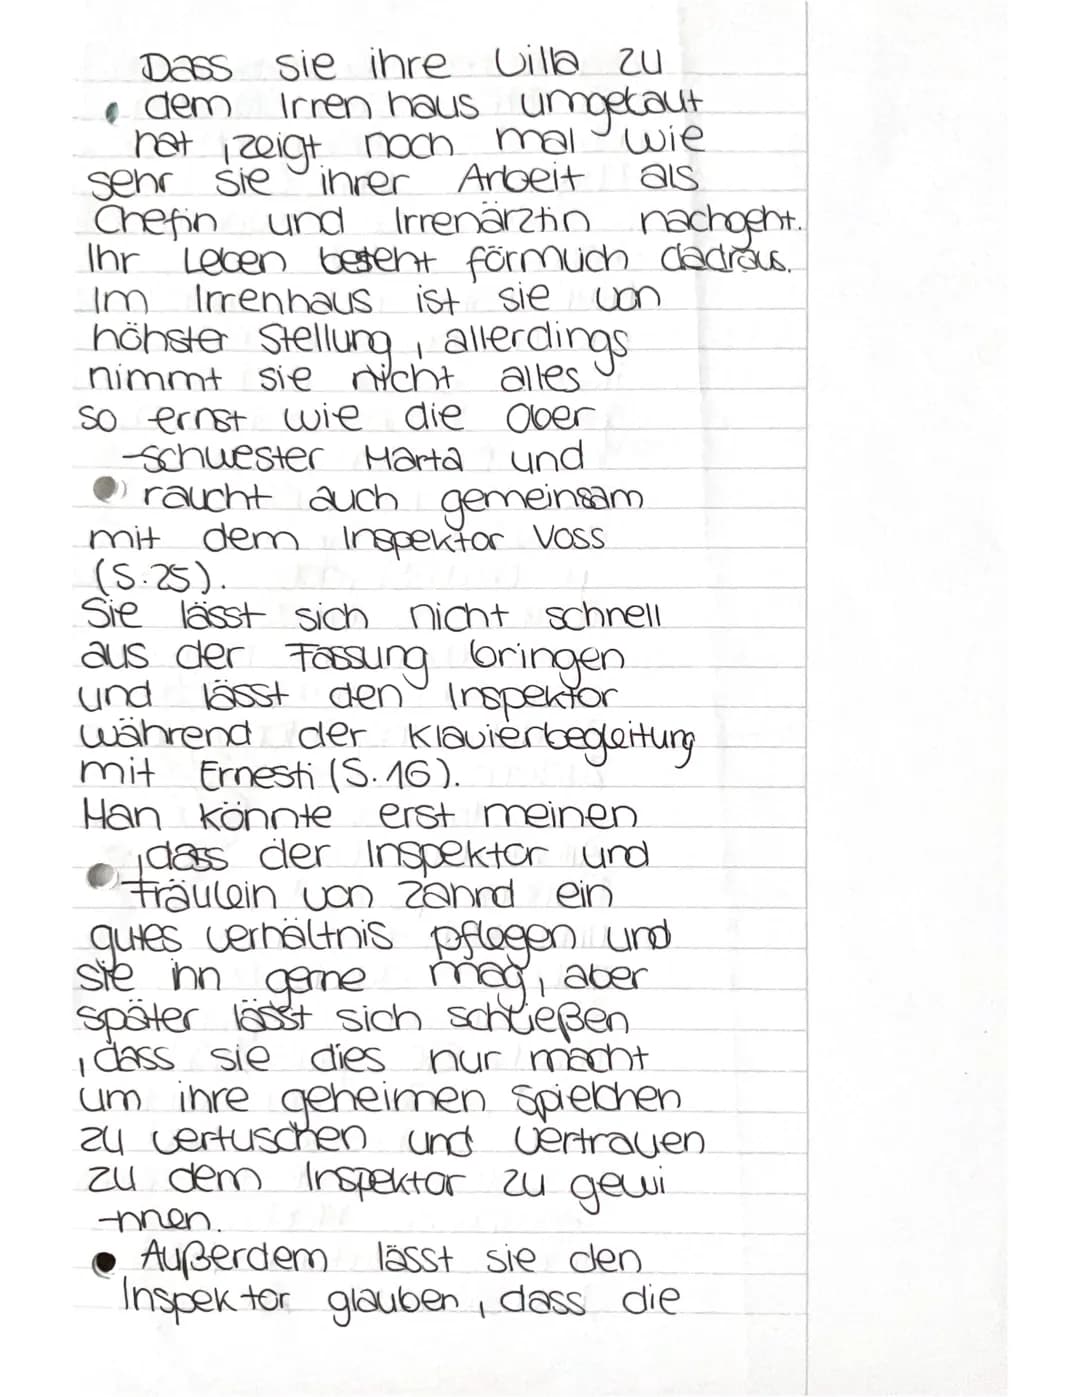 Dass sie ihre Villa zu
dem Irrenhaus umgebaut
hat, zeigt noch mal wie
sehr sie ihrer Arbeit als
Chefin und Irrenärztin nachgeht.
Ihr Leben besteht förmlich dadraus.
Im Irrenhaus ist sie von
höhster Stellung, allerdings
nimmt sie nicht alles
so ernst wie die Ober
-schwester Marta und
raucht auch gemeinsam
mit dem Inspektor Voss
(S.25).
Sie lässt sich nicht schnell
aus der Fassung bringen
und lässt den Inspektor
während der Klavierbegleitung
mit Ernesti (S.16).
Man könnte erst meinen
, dass der Inspektor und
Fräulein von Zahnd ein
gutes Verhältnis pflegen und
sie ihn gerne mag, aber
später lässt sich schließen
, dass sie dies nur macht
um ihre geheimen Spielchen
zu vertuschen und Vertrauen
zu dem Inspektor zu gewi
-nnen.
Außerdem lässt sie den
Inspektor glauben, dass die